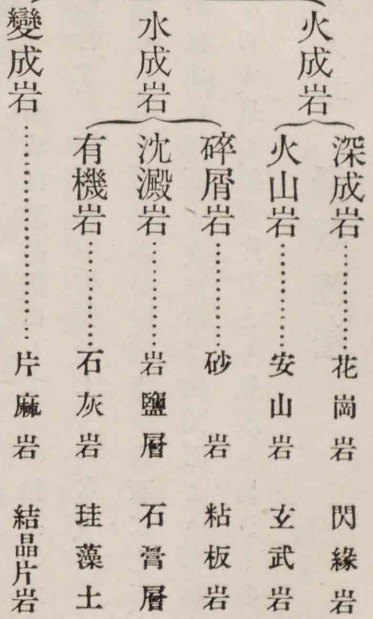 火成岩
深成岩…………花崗岩 閃緣岩
火山岩…………安山岩 玄武岩
水成岩
碎屑岩…………砂岩 粘板岩
沈澱岩…………岩鹽層 石膏層
有機岩…………石灰岩 珪藻土
變成岩…………片麻岩 結晶片岩